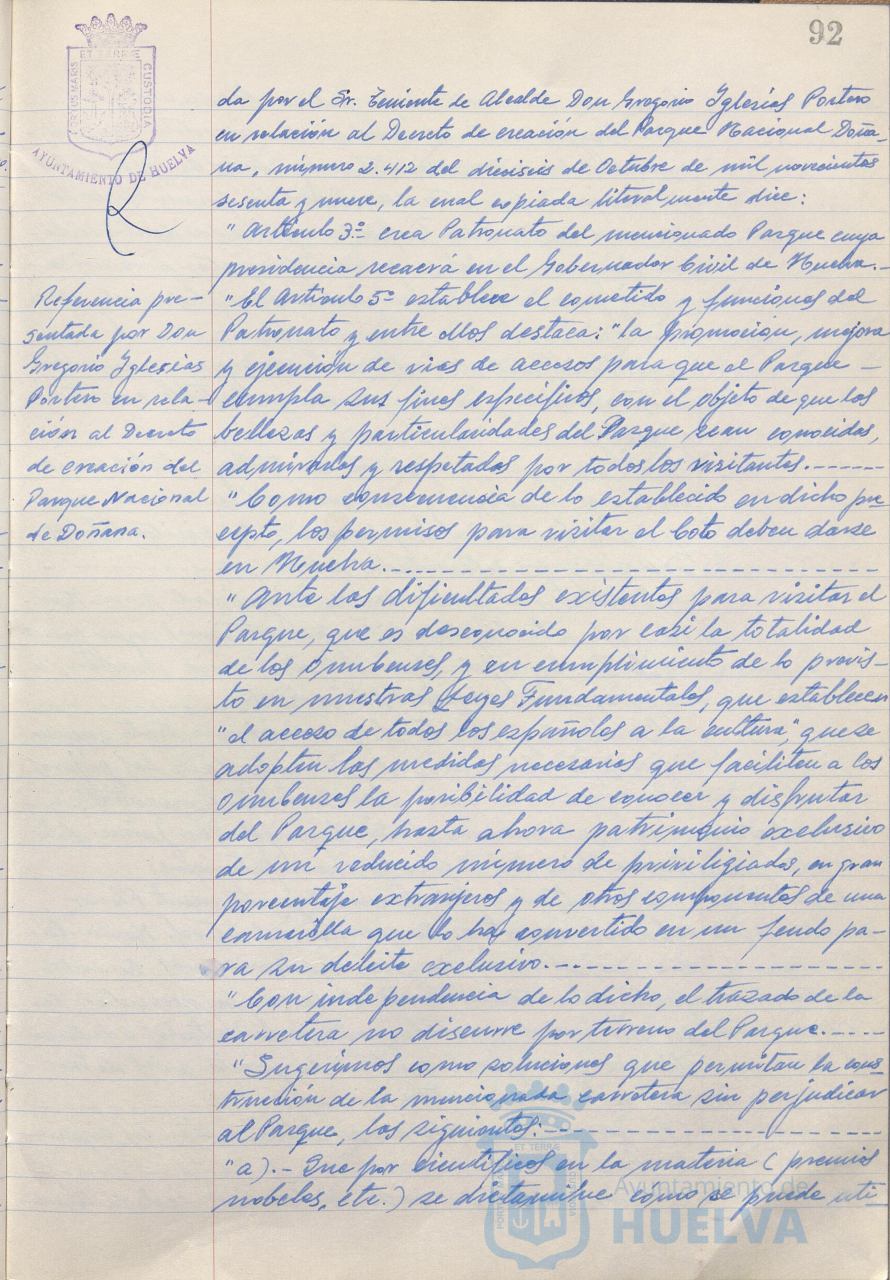 92
PORTUS MARIS
ET TERRE
CUSTODIA
AYUNTAMIENTO DE HUELVA
da por el Sr. Teniente de Alcalde Don Gregorio Yglesias Portero
en relación al Decreto de creación del Parque Nacional Doña-
na, número 2.412 del dieciseis de Octubre de mil novecientos
sesenta y nueve, la cual copiada literalmente dice:
"Artículo 3º crea Patronato del mencionado Parque cuya
presidencia recaerá en el Gobernador Civil de Huelva.-
"El Artículo 5º establece el cometido y funciones del
Patronato y entre ellos destaca: "la promoción, mejora
y ejecución de vias de accesos para que el Parque -
cumpla sus fines específicos, con el objeto de que las
bellezas y particularidades del Parque sean conocidas,
admiradas y respetadas por todos los visitantes.------
"Como consecuencia de lo establecido en dicho pre-
cepto, los permisos para visitar el Coto deben darse
en Huelva.------------------------------
"Ante las dificultades existentes para visitar el
Parque, que es desconocido por casi la totalidad
de los onubenses, y en cumplimiento de lo previs-
to en nuestras Leyes Fundamentales, que establecen
"el acceso de todos los españoles a la cultura", que se
adopten las medidas necesarias que faciliten a los
onubenses la posibilidad de conocer y disfrutar
del Parque, hasta ahora patrimonio exclusivo
de un reducido número de priviligiados, en gran
porcentaje extranjeros y de otros componentes de una
camarilla que lo han convertido en un feudo pa-
ra su deleite exclusivo.---------------------
"Con independencia de lo dicho, el trazado de la
carretera no discurre por terreno del Parque.-----
"Sugerimos como soluciones que permitan la cons-
trucción de la mencionada carretera sin perjudicar
al Parque, las siguientes:---------------------
"a).- Que por científicos en la materia (premios
nobeles, etc.) se dictamine como se puede uti-
Referencia pre-
sentada por Don
Gregorio Yglesias
Portero en rela-
ción al Decreto
de creación del
Parque Nacional
de Doñana.
ET TERRE
Ayuntamiento de
HUELVA